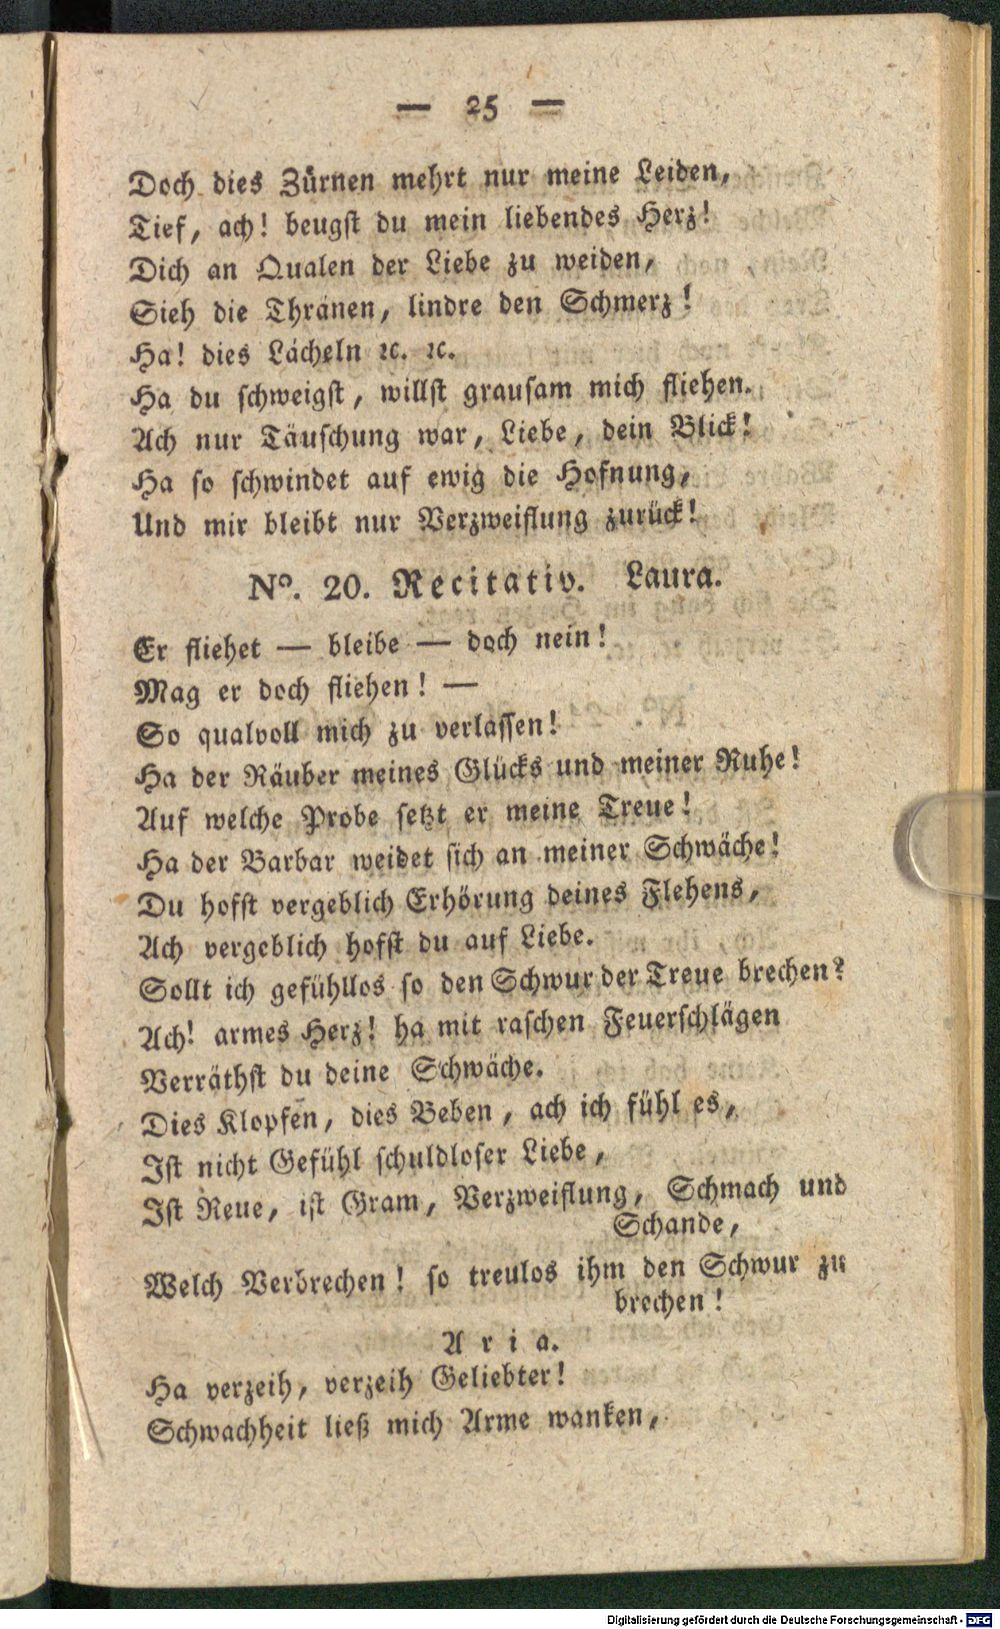 — 25 —
Doch dies Zürnen mehrt nur meine Leiden,
Tief, ach! beugst du mein liebendes Herz!
Dich an Qualen der Liebe zu weiden,
Sieh die Thränen, lindre den Schmerz!
Ha! dies Lächeln ꝛc. ꝛc.
Ha du schweigst, willst grausam mich fliehen.
Ach nur Täuschung war, Liebe, dein Blick!
Ha so schwindet auf ewig die Hofnung,
Und mir bleibt nur Verzweiflung zurück!
Nº. 20. Recitativ. Laura.
Er fliehet — bleibe — doch nein!
Mag er doch fliehen! —
So qualvoll mich zu verlassen!
Ha der Räuber meines Glücks und meiner Ruhe!
Auf welche Probe setzt er meine Treue!
Ha der Barbar weidet sich an meiner Schwäche!
Du hofst vergeblich Erhörung deines Flehens,
Ach vergeblich hofst du auf Liebe.
Sollt ich gefühllos so den Schwur der Treue brechen?
Ach! armes Herz! ha mit raschen Feuerschlägen
Verräthst du deine Schwäche.
Dies Klopfen, dies Beben, ach ich fühl es,
Ist nicht Gefühl schuldloser Liebe,
Ist Reue, ist Gram, Verzweiflung, Schmach und
Schande,
Welch Verbrechen! so treulos ihm den Schwur zu
brechen!
Aria.
Ha verzeih, verzeih Geliebter!
Schwachheit ließ mich Arme wanken,
Digitalisierung gefördert durch die Deutsche Forschungsgemeinschaft - DFG